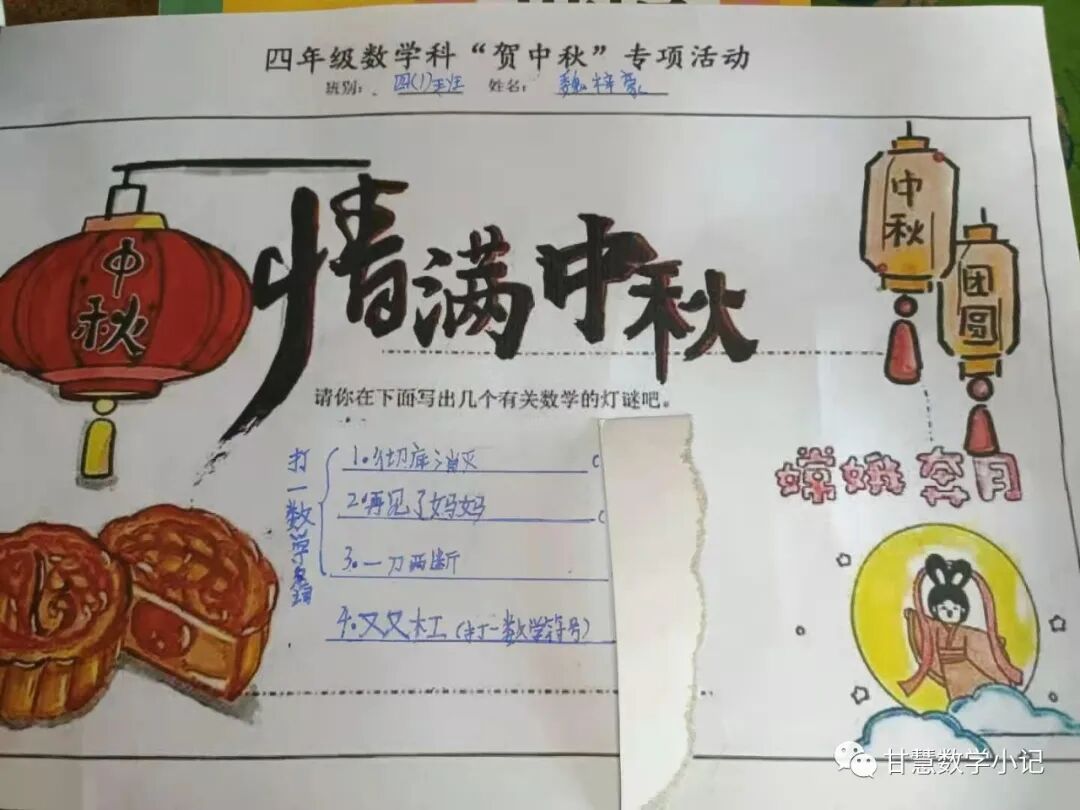 四年级数学科“贺中秋”专项活动
班别: 四(1)班 姓名: 魏梓豪
中秋
情满中秋
中秋
团圆
请你在下面写出几个有关数学的灯谜吧。
打一数学名词
1.彻底消灭
2.再见了妈妈
3.一刀两断
4.又又杠(打一数学符号)
嫦娥奔月
甘慧数学小记